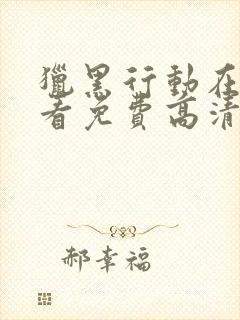 獵黑行動在
看免費高清
郝幸福